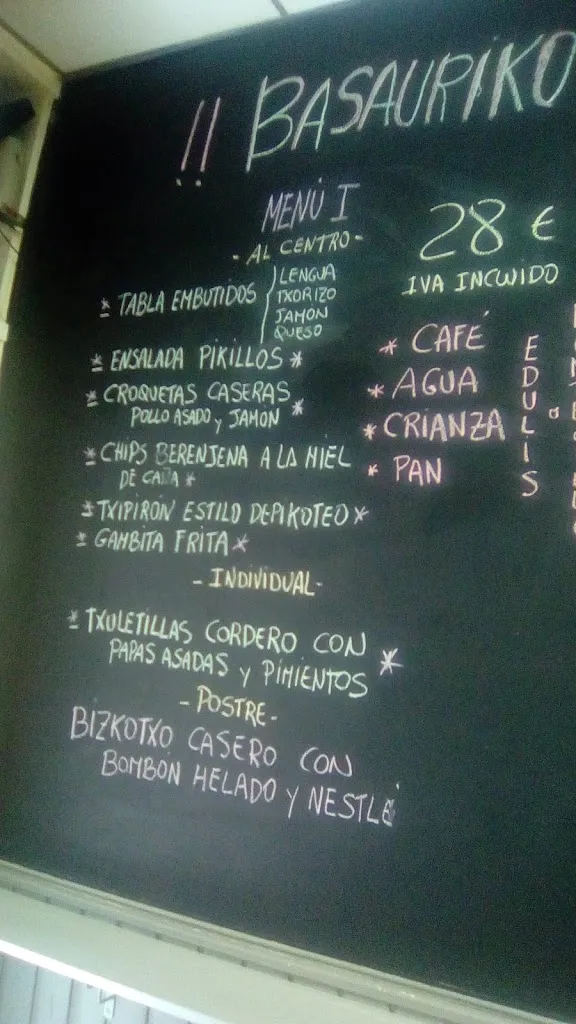 !! BASAURIKO
MENÚ I
28 €
- AL CENTRO -
IVA INCLUIDO
* TABLA EMBUTIDOS
LENGUA
TXORIZO
JAMON
QUESO
* ENSALADA PIKILLOS *
* CROQUETAS CASERAS
POLLO ASADO y JAMON *
* CHIPS BERENJENA A LA MIEL
DE CAÑA *
* TXIPIRÓN ESTILO DEPIKOTEO *
* GAMBITA FRITA *
- INDIVIDUAL -
* TXULETILLAS CORDERO CON
PAPAS ASADAS y PIMIENTOS *
- POSTRE -
BIZKOTXO CASERO CON
BOMBÓN HELADO y NESTLÉ
* CAFÉ
* AGUA
* CRIANZA
* PAN
EDULIS